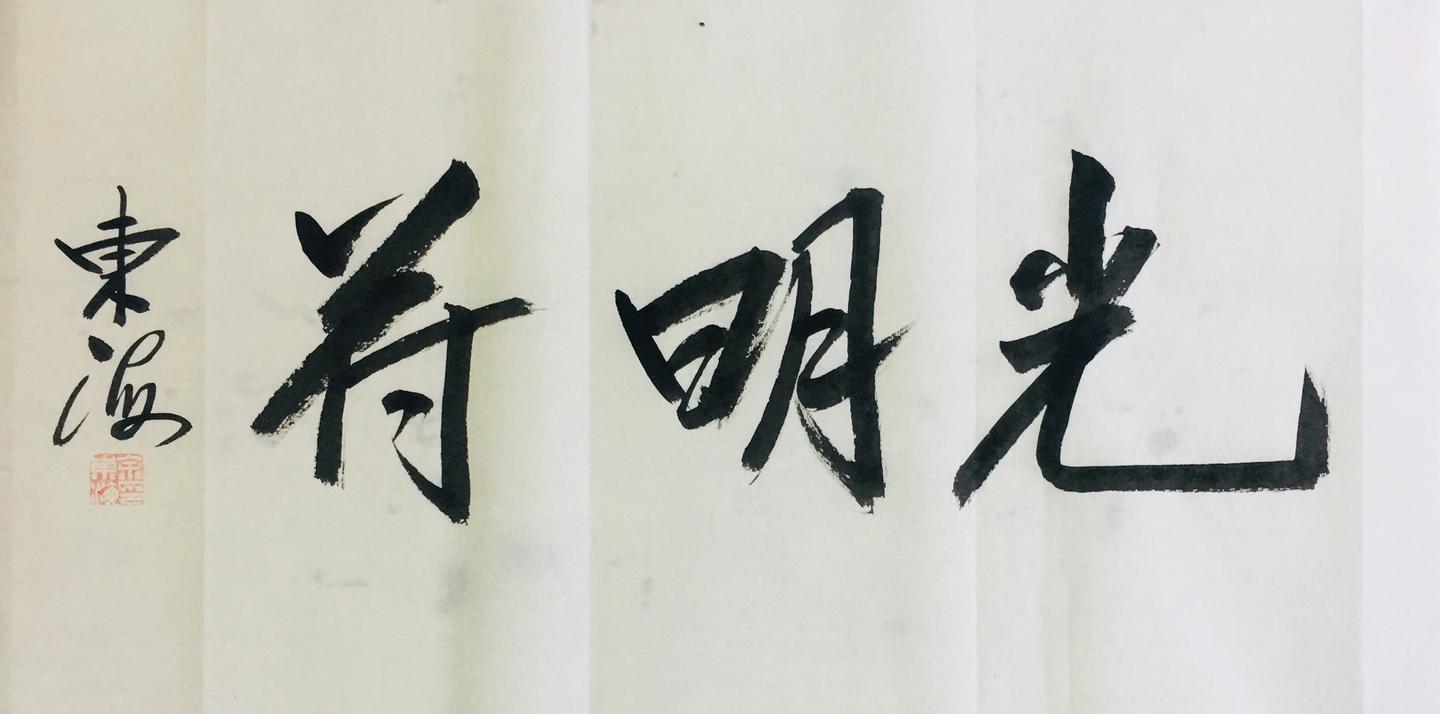 光明符
東海